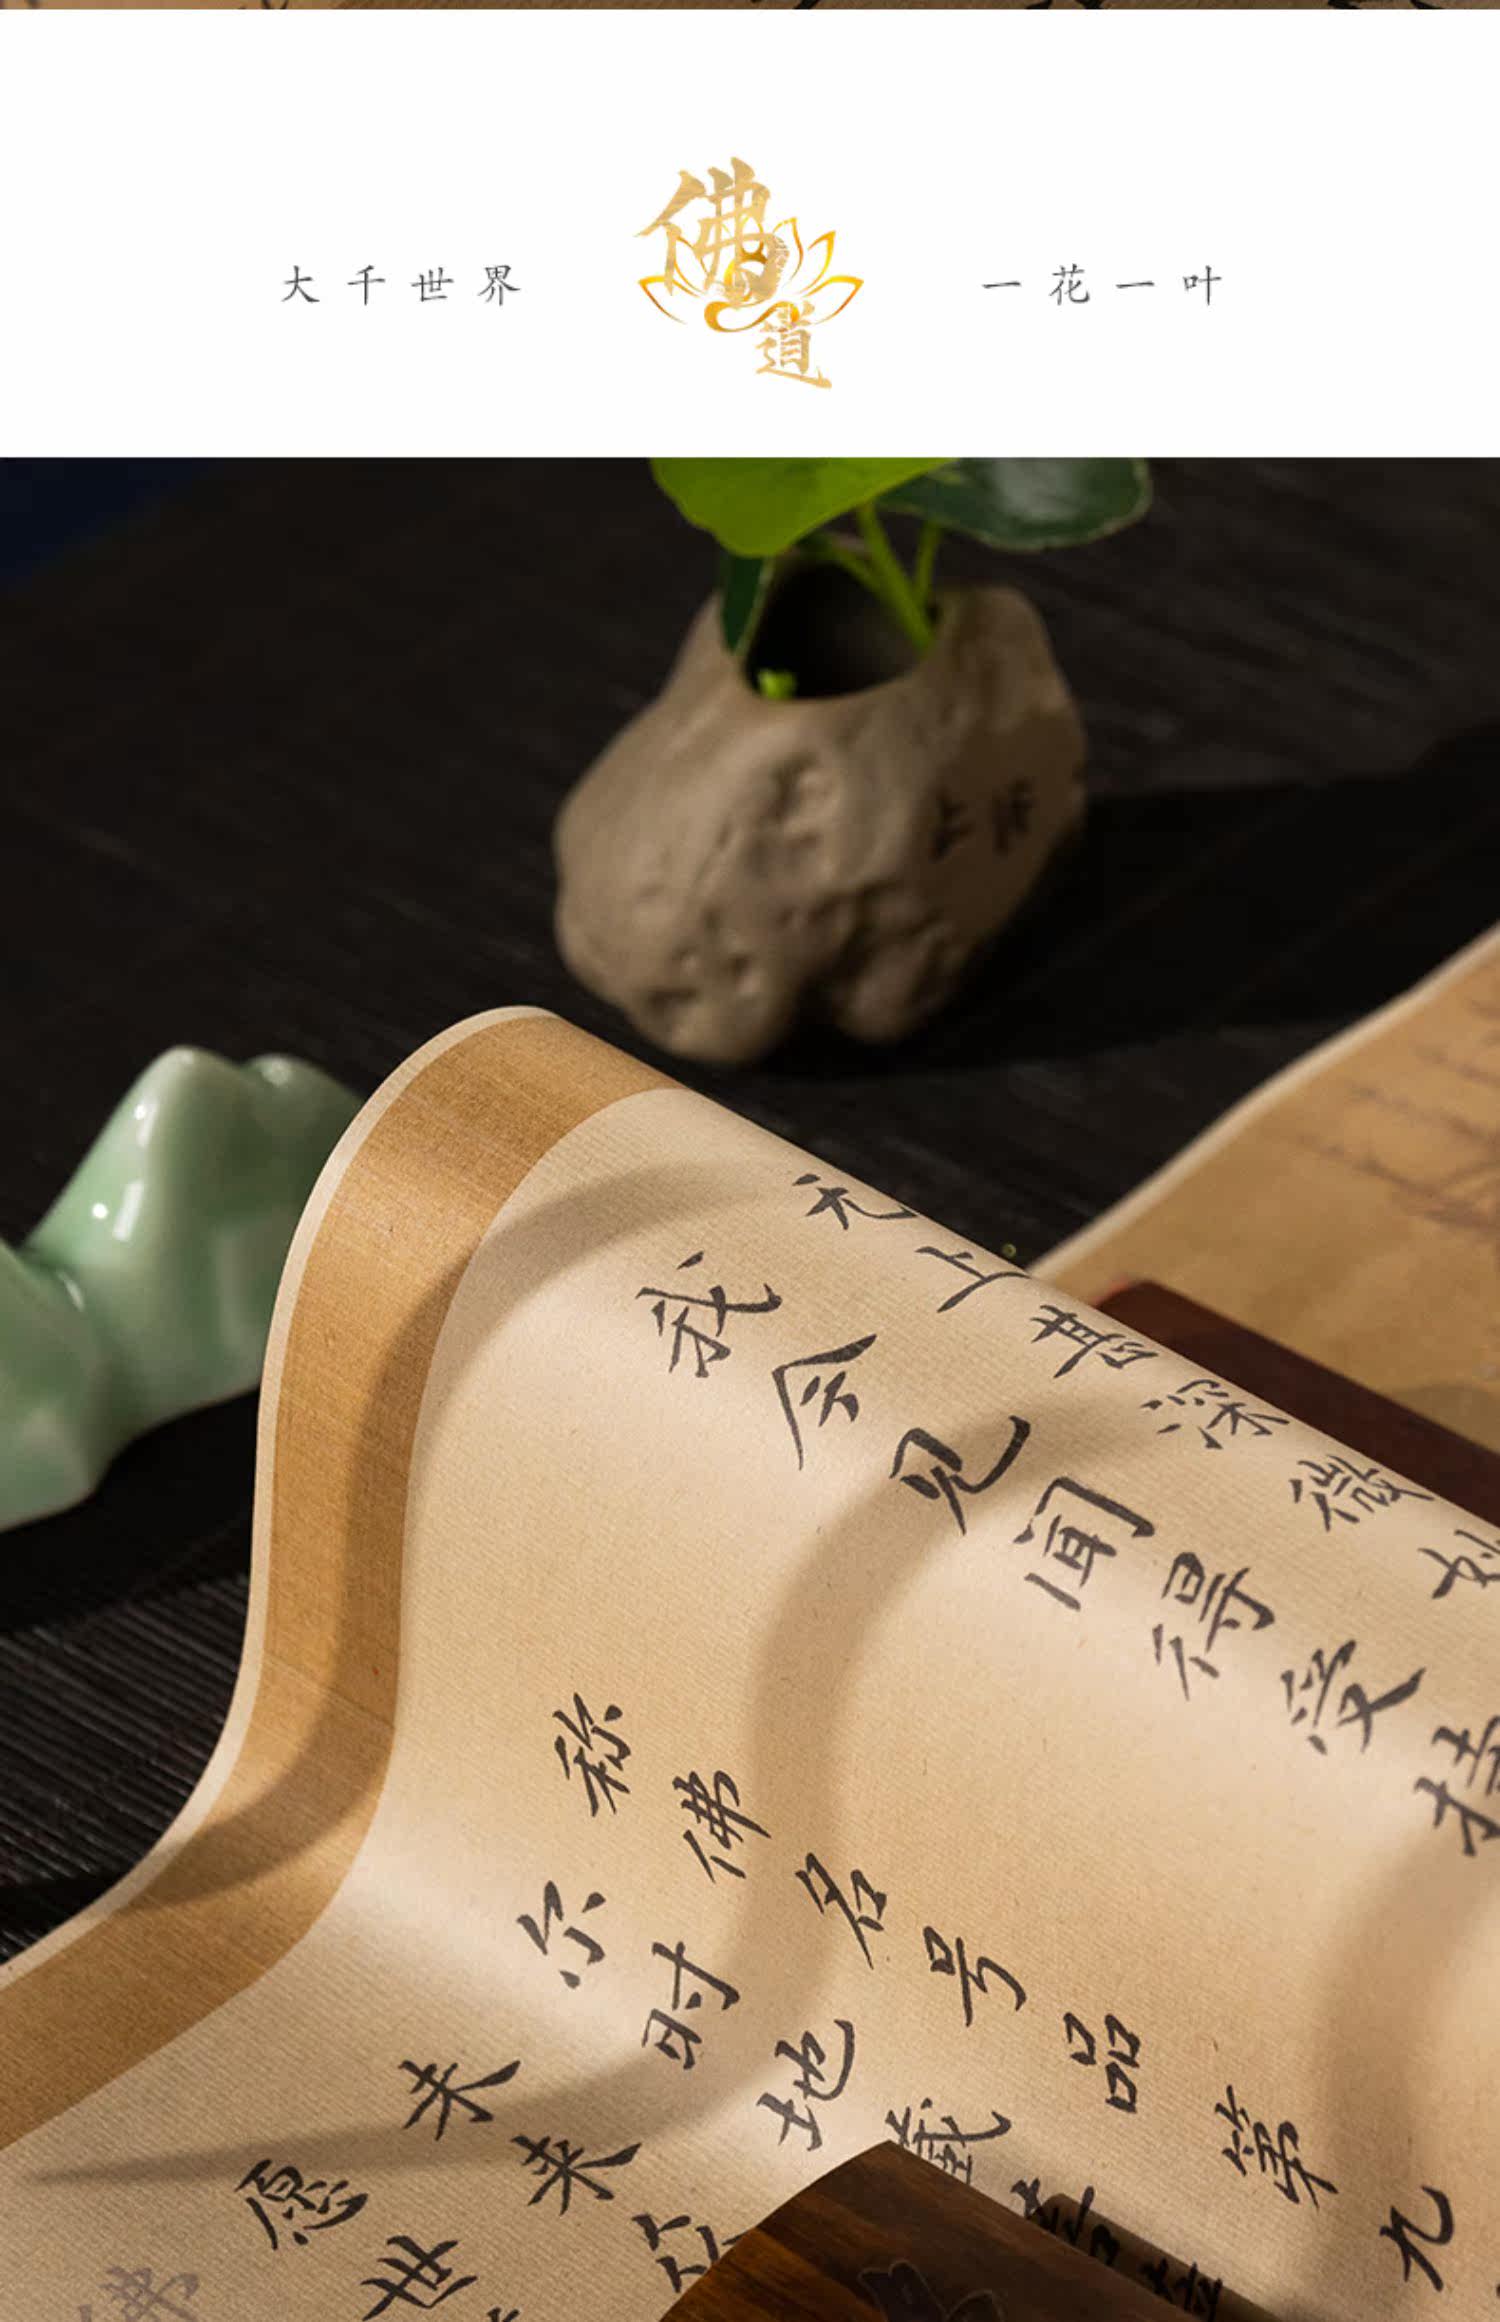 大千世界
佛道
一花一叶
无上甚深微妙
我今见闻得受持
称佛名号品第九
尔时地藏
未来众
愿世
佛